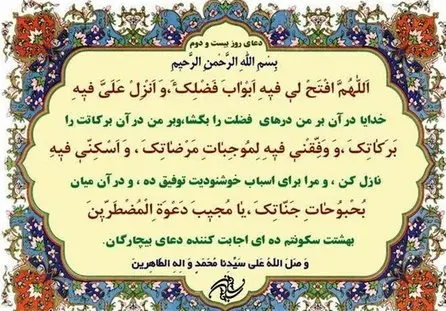 دعای روز بیست و دوم
بِسْمِ اللهِ الرَّحْمنِ الرَّحیمِ
اَللّهُمَّ افْتَحْ لي فیهِ اَبْوابَ فَضْلِکَ ،وَ اَنْزِلْ عَلَيَّ فیهِ
خدایا درآن بر من درهای فضلت را بگشا،وبر من درآن برکاتت را
بَرَکاتِکَ ،وَ وَفِّقْني فیهِ لِمُوجِباتِ مَرْضاتِکَ ، وَ اَسْکِنّي فیهِ
نازل کن ، و مرا برای اسباب خوشنودیت توفیق ده ، و درآن میان
بُحْبُوحاتِ جَنّاتِکَ ،یا مُجیبَ دَعْوَةِ الْمُضْطَرّینَ
بهشتت سکونتم ده ای اجابت کننده دعای بیچارگان.
وَ صَلَ اللهُ عَلی سَیِّدِنا مُحَمَّدٍ وَ الِهِ الطّاهِرینَ